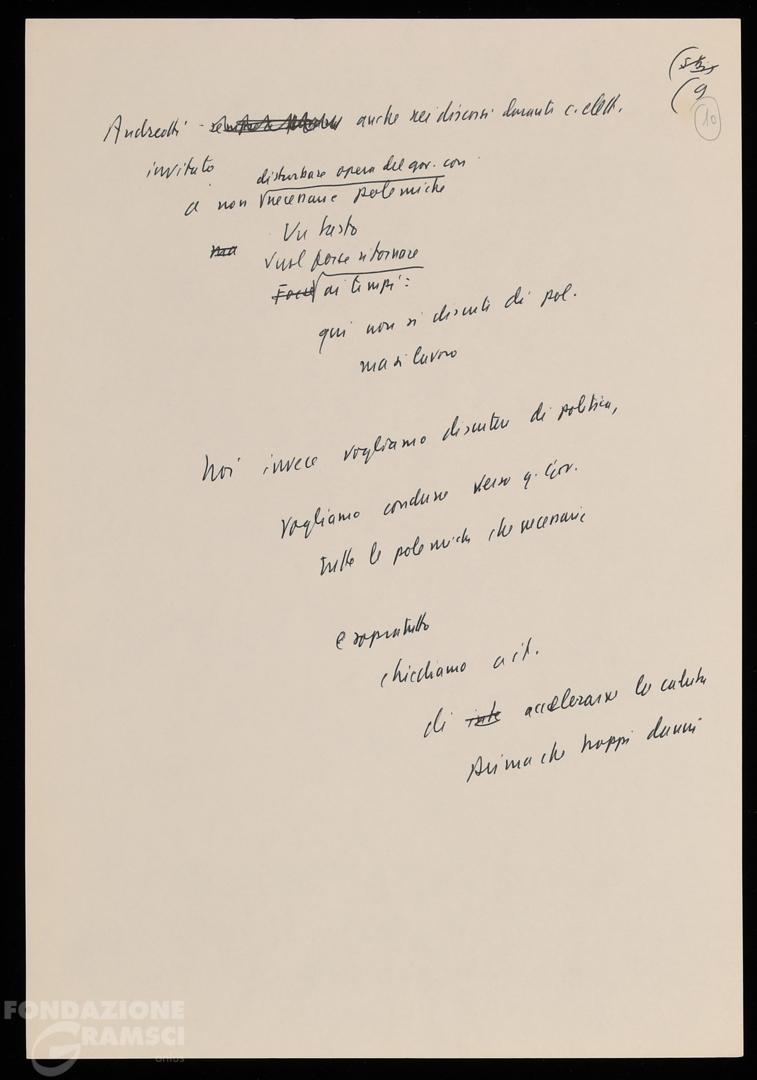 9
10
Andreotti - anche nei discorsi durante c. elett.
invitato
disturbare opera del gov. con
a non necessarie polemiche
Un tasto
ma
Vuol forse ritornare
Forse ai tempi:
qui non si discute di pol.
ma si lavora
Noi invece vogliamo discutere di politica,
vogliamo condurre verso q. Gov.
tutte le polemiche che necessarie
e sopratutto
chiediamo a it.
di accelerarne la caduta
prima che troppi danni
FONDAZIONE
GRAMSCI
onlus